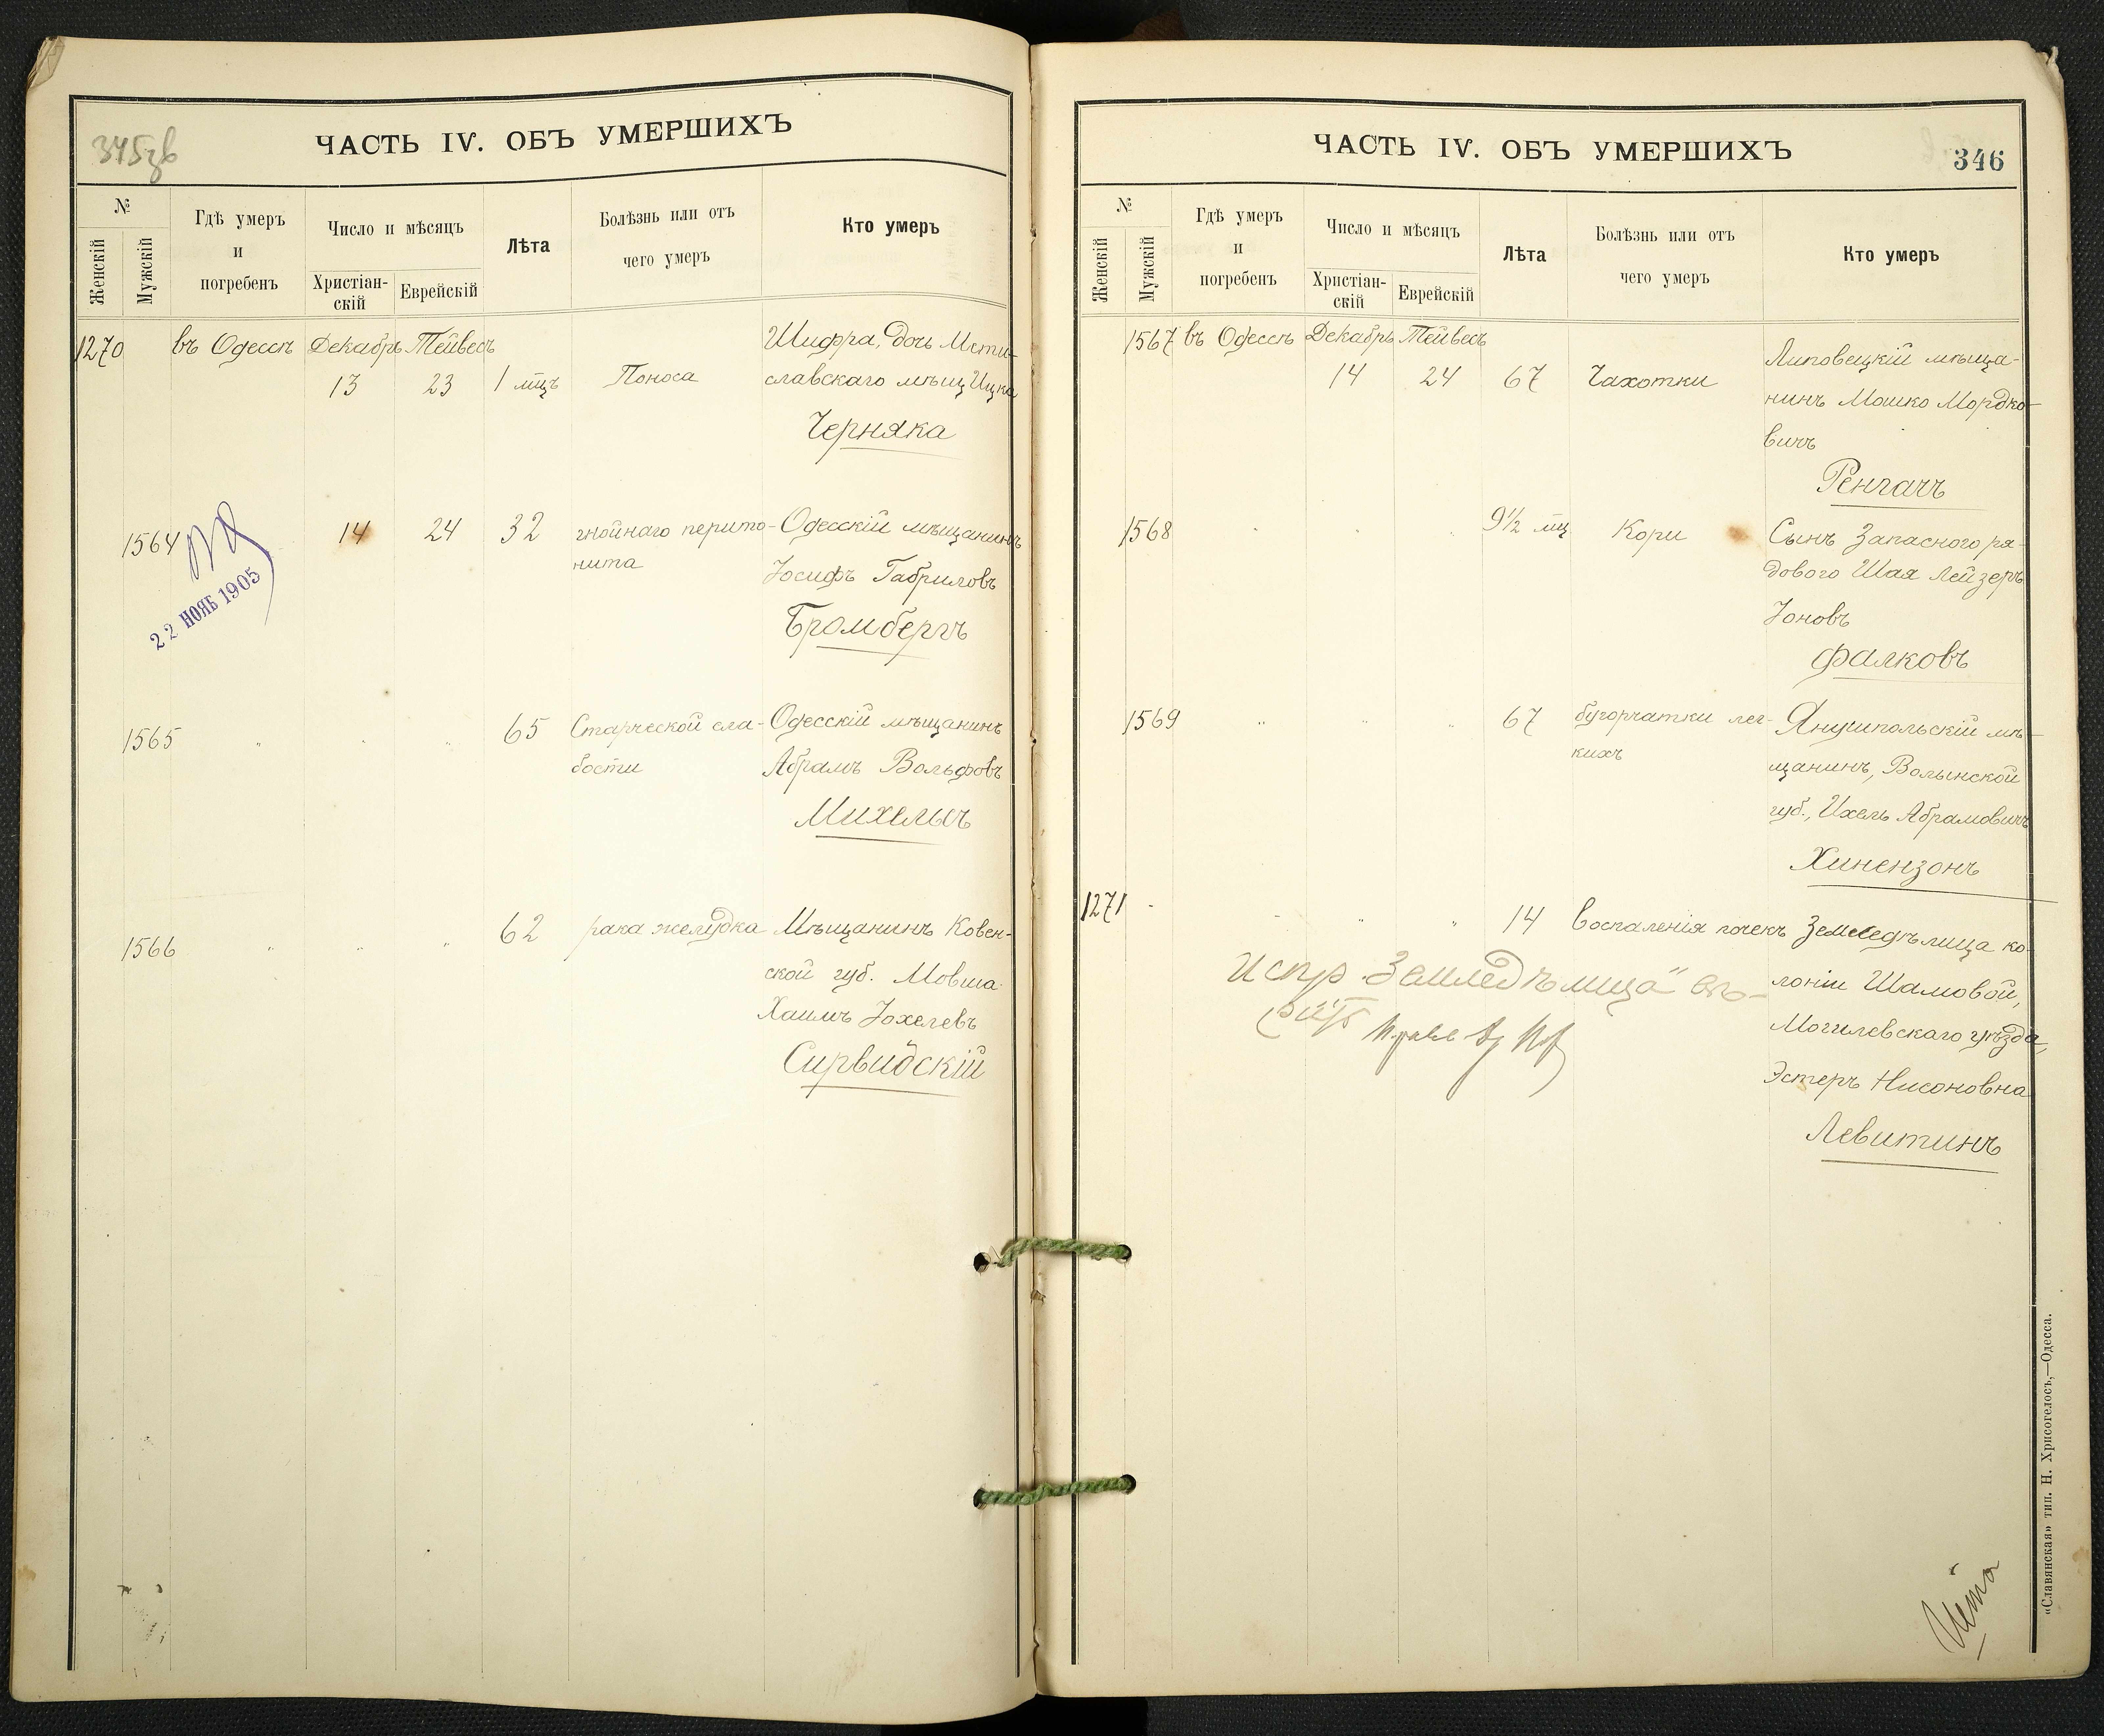 ЧАСТЬ IV. ОБЪ УМЕРШИХЪ
№
Женскій
Мужскій
Гдѣ умеръ
и
погребенъ
Число и мѣсяцъ
Христіан-
скій
Еврейскій
Лѣта
Болѣзнь или отъ
чего умеръ
Кто умеръ
1270 въ Одессѣ Декабрь Тейвесъ Шифра, дочь Мсти-
13 23 1 мцъ Поноса славскаго мѣщ Ицка
Черняка
1564 14 24 32 гнойнаго перито- Одесскій мѣщанинъ
нита Іосифъ Габриловъ
Бромбергъ
22 НОЯБ 1905
1565 " " " 65 Старческой сла- Одесскій мѣщанинъ
бости Абрамъ Вольфовъ
Михельсъ
1566 " " " 62 рака желудка Мѣщанинъ Ковен-
ской губ. Мовша-
Хаимъ Іохелевъ
Сирвидскій
ЧАСТЬ IV. ОБЪ УМЕРШИХЪ
346
№
Женскій
Мужскій
Гдѣ умеръ
и
погребенъ
Число и мѣсяцъ
Христіан-
скій
Еврейскій
Лѣта
Болѣзнь или отъ
чего умеръ
Кто умеръ
1567 въ Одессѣ Декабрь Тейвесъ
14 24 67 Чахотки Липовецкій мѣща-
нинъ Мошко Мордко-
вичъ
Ренгачъ
1568 " " " 9½ мц Кори Сынъ Запаснаго ря-
дового Шая Лейзеръ
Іоновъ
Фалковъ
1569 " " " 67 бугорчатки лег- Янушпольскій мѣ-
кихъ щанинъ, Волынской
губ., Ихель Абрамовичъ
Хинензонъ
1271 - - " " 14 Воспаленія почекъ Земледѣлица ко-
лоніи Шамовой,
Могилевскаго уѣзда,
Эстеръ Нисоновна
Левитинъ
Испр. Земледѣлица" вѣ-
рить
«Славянская» тип. Н. Хрисогелосъ,—Одесса.